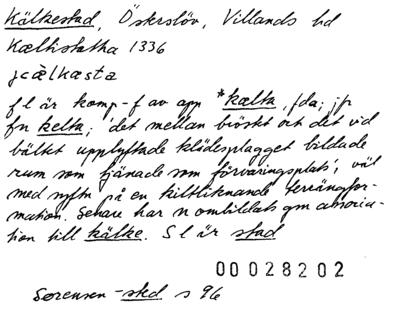 Kälkestad, Ö skrslöv, Villands hd
Kælkistatha 1336
jcälkasta
f l är komp-f av app *kælta, fda; jp
fn kelta; 'det mellan bröst och det vid
bältet upplyftade klädesplagget bildade
rum som tjänade som förvaringsplats', väl
med syftn på en kiltliknande terrängfor-
mation. Senare har n ombildats gm associa-
tion till kälke. S l är stad
00028202
Sørensen -sted s 96